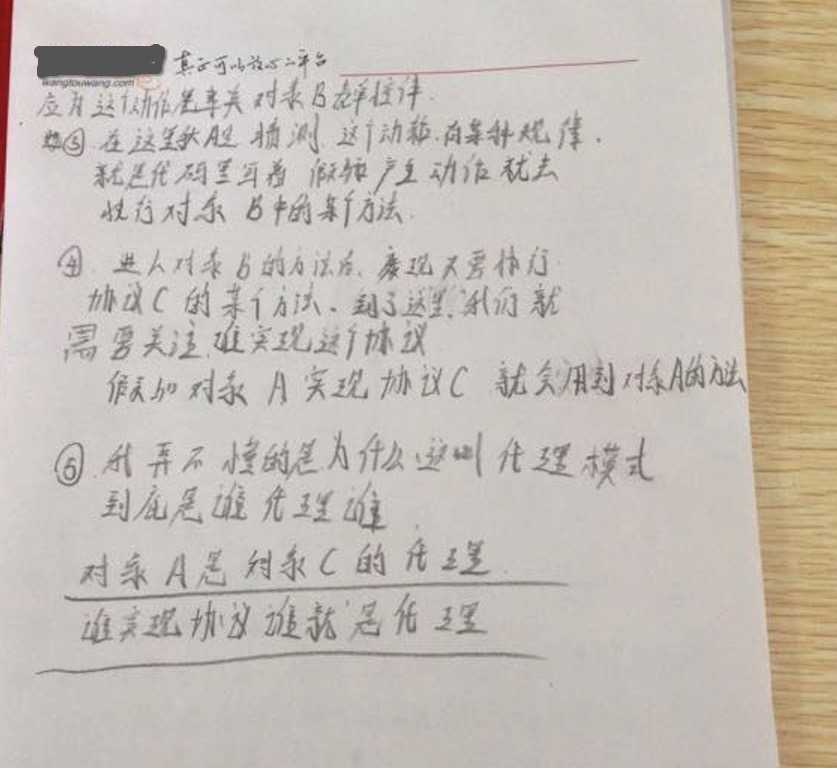 真正可以放心二平台
wangtouwang.com
应用这个动作是率关 对象 B 在举控件.
③. 在这里就A是 猜测 这个动作.有某种规律.
就是代码里写着 假如 产生 动作 就去
执行对象 B中的某个方法.
④. 进入对象B的方法后, 发现又要执行
协议C 的某个方法. 到了这里,我们就
需要关注,谁实现这个协议
假如 对象 A 实现 协议C 就会用到对象A的方法
⑤.我弄不懂的是为什么这叫 代理模式
到底是谁代理谁
对象 A是 对象C 的代理.
谁实现协议谁就是代理